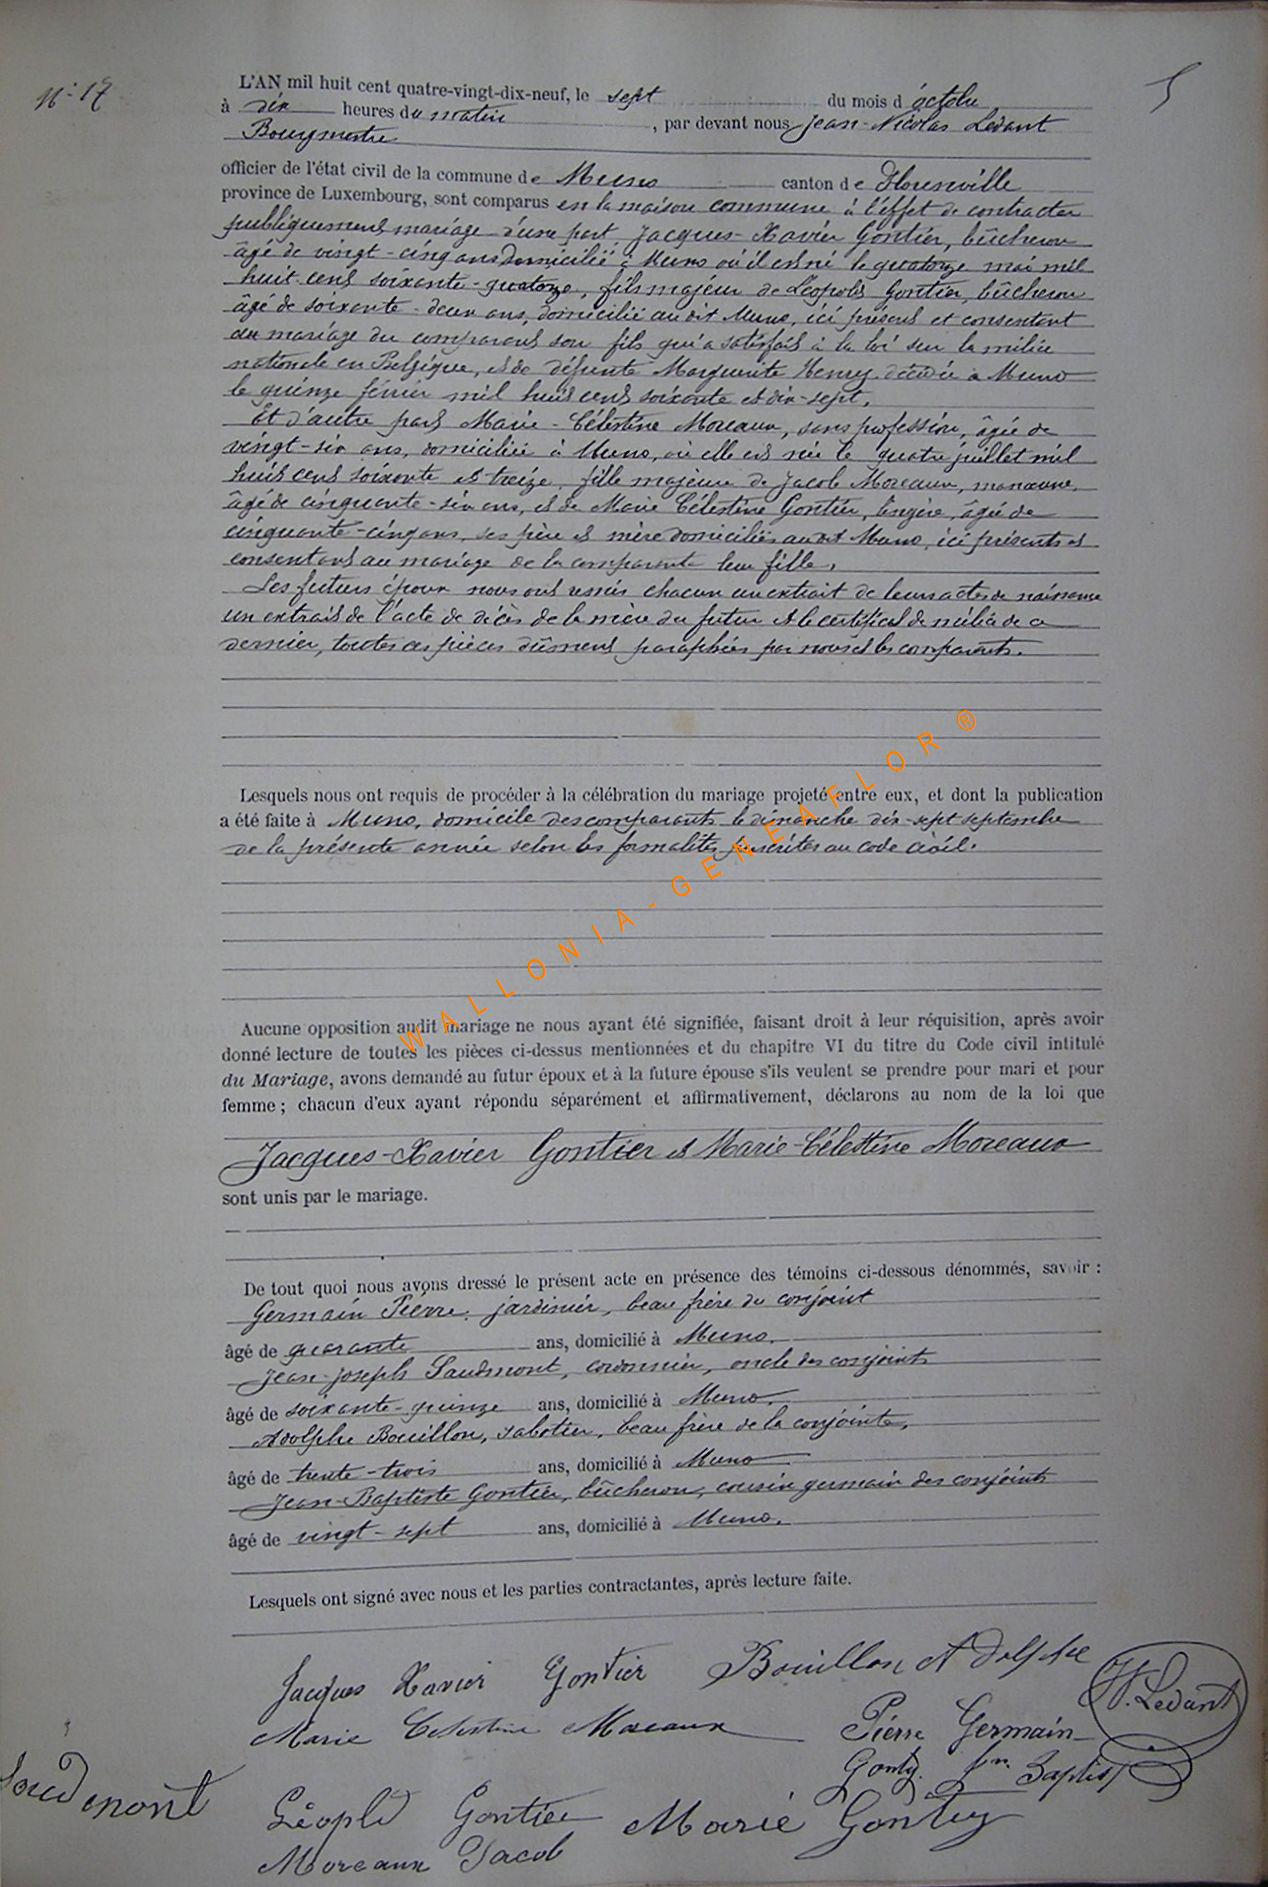 N° 17
5
L'AN mil huit cent quatre-vingt-dix-neuf, le sept du mois d'octobre
à dix heures du matin, par devant nous Jean-Nicolas Ledant
Bourgmestre
officier de l'état civil de la commune de Muno canton de Florenville
province de Luxembourg, sont comparus en la maison commune à l'effet de contracter
publiquement mariage d'une part, Jacques-Xavier Gontier, bûcheron
âgé de vingt-cinq ans domicilié à Muno où il est né le quatorze mai mil
huit cent soixante-quatorze, fils majeur de Léopold Gontier, bûcheron
âgé de soixante-deux ans, domicilié au dit Muno, ici présent et consentant
au mariage du comparant son fils qui a satisfait à la loi sur la milice
nationale en Belgique, et de défunte Marguerite Henry décédée à Muno
le quinze février mil huit cent soixante et dix-sept.
Et d'autre part Marie-Célestine Moreaux, sans profession, âgée de
vingt-six ans, domiciliée à Muno, où elle est née le quatre juillet mil
huit cent soixante et treize, fille majeure de Jacob Moreaux, manœuvre,
âgé de cinquante-six ans, et de Marie Célestine Gontier, lingère, âgée de
cinquante-cinq ans, ses père et mère domiciliés au dit Muno, ici présents et
consentant au mariage de la comparante leur fille.
Les futurs époux nous ont remis chacun un extrait de leurs actes de naissance
un extrait de l'acte de décès de la mère du futur et le certificat de milice de ce
dernier, toutes ces pièces dûment paraphées par nous et les comparants.
Lesquels nous ont requis de procéder à la célébration du mariage projeté entre eux, et dont la publication
a été faite à Muno, domicile des comparants le dimanche dix-sept septembre
de la présente année selon les formalités prescrites au code civil.
WALLONIA-GENEAFLOR®
Aucune opposition audit mariage ne nous ayant été signifiée, faisant droit à leur réquisition, après avoir
donné lecture de toutes les pièces ci-dessus mentionnées et du chapitre VI du titre du Code civil intitulé
du Mariage, avons demandé au futur époux et à la future épouse s'ils veulent se prendre pour mari et pour
femme ; chacun d'eux ayant répondu séparément et affirmativement, déclarons au nom de la loi que
Jacques-Xavier Gontier et Marie-Célestine Moreaux
sont unis par le mariage.
De tout quoi nous avons dressé le présent acte en présence des témoins ci-dessous dénommés, savoir :
Germain Pierre, jardinier, beau frère du conjoint
âgé de quarante ans, domicilié à Muno.
Jean-Joseph Saudmont, cordonnier, oncle des conjoints
âgé de soixante-quinze ans, domicilié à Muno.
Adolphe Bouillon, sabotier, beau frère de la conjointe,
âgé de trente-trois ans, domicilié à Muno
Jean-Baptiste Gontier, bûcheron, cousin germain des conjoints
âgé de vingt-sept ans, domicilié à Muno.
Lesquels ont signé avec nous et les parties contractantes, après lecture faite.
Jacques Xavier Gontier Bouillon Adolphe
N. Ledant
Marie Celestine Moreaux Pierre Germain
Gonty Jn Baptist
Léopld Gontier Marie Gontiy
Moreaux Jacob